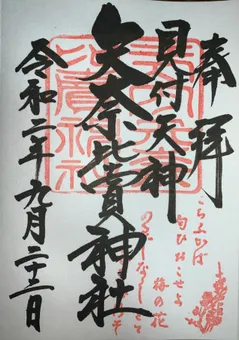 奉拝
見付天神
矢奈比賣神社
令和二年九月二十三日
こちふかば
匂ひおこせよ
梅の花
あるじなしとて